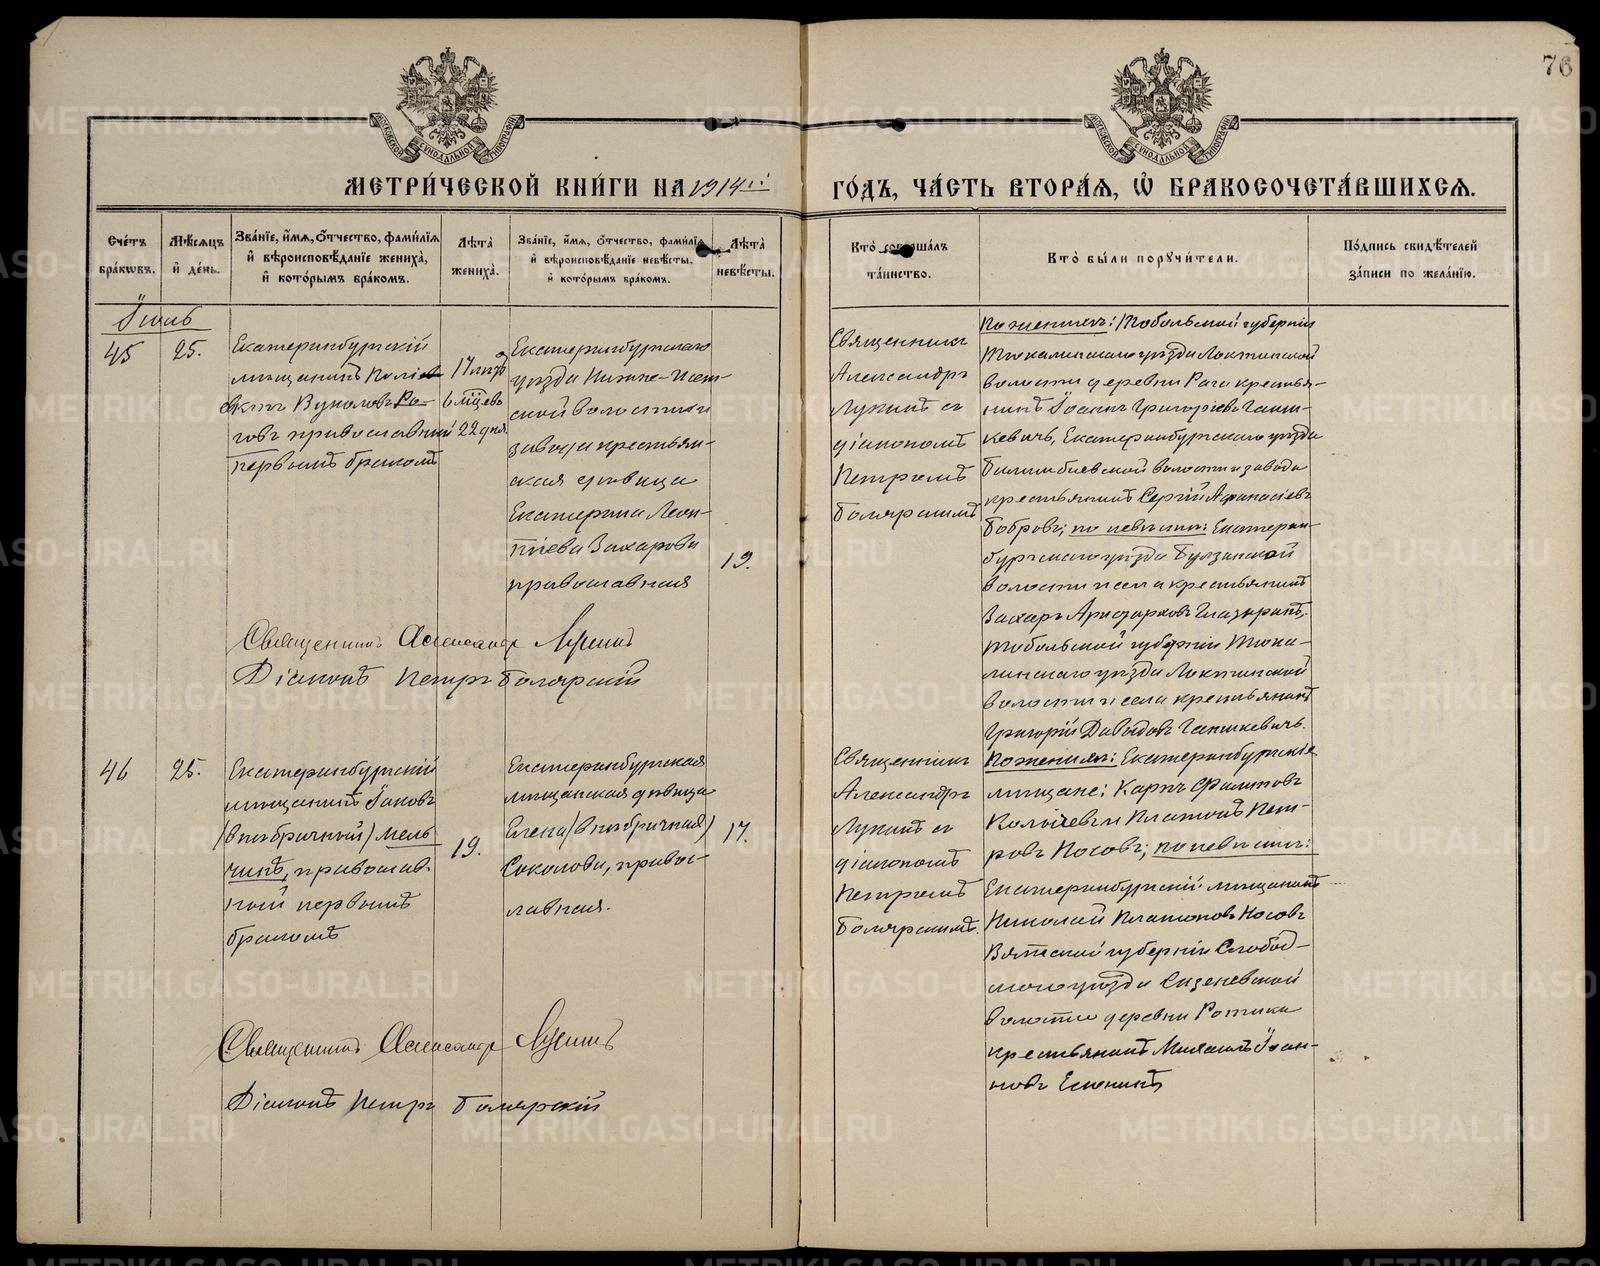 76
МЕТРИ́ЧЕСКОЙ КНИ́ГИ НА 1914 й
ГО́ДЪ, ЧА́СТЬ ВТОРА́Я, Ѡ БРАКОСОЧЕТА́ВШИХСЯ.
Сче́тъ бра́кѡвъ.
Мѣ́сяцъ и де́нь.
Зва́нїе, и́мя, ѻ҆́тчество, фами́лїя и вѣроисповѣ́данїе жениха̀, и кото́рымъ бра́комъ.
Лѣта̀ жениха̀.
Зва́нїе, и́мя, ѻ҆́тчество, фами́лїя и вѣроисповѣ́данїе невѣ́сты, и кото́рымъ бра́комъ.
Лѣта̀ невѣ́сты.
Кто̀ соверша́лъ та́инство.
Кто̀ бы́ли порꙋчи́тели.
По́дпись свидѣ́телей за́писи по жела́нїю.
Іюнь
45
25.
Екатеринбургскій
мѣщанинъ
Вуколовъ Ро-
говъ православный
первымъ бракомъ
17 лѣтъ
6 мѣсцевъ
22 дня.
Екатеринбургскаго
уѣзда Нижне-Исет-
ской волости и
завода крестьян-
ская дѣвица
Екатерина Леон-
тіева Захарова
православная
19.
Священникъ
Александръ
Лукинъ съ
діакономъ
Петромъ
Боляркимъ
По женихѣ: Тобольской губерніи
Тюкалинскаго уѣзда Локтинской
волости деревни крестья-
нинъ Іоаннъ Григоріевъ Гаш-
кевичъ, Екатеринбургскаго уѣзда
Билимбаевской волости и завода
крестьянинъ Сергій Афанасіевъ
Бобровъ; по невѣстѣ: Екатерин-
бургскаго уѣзда Булзинской
волости и села крестьянинъ
Захаръ Аристарховъ Глазыринъ,
Тобольской губерніи Тюка-
линскаго уѣзда Локтинской
волости и села крестьянинъ
Григорій Давыдовъ Гашкевичъ.
Священникъ Александръ Лукинъ
Діаконъ Петръ Болярскій
46
25.
Екатеринбургскій
мѣщанинъ Іаковъ
(внѣбрачный) Мель
чинъ, православ-
ный первымъ
бракомъ
19.
Екатеринбургская
мѣщанская дѣвица
Елена (внѣбрачная)
Соколова, правос-
лавная.
17.
Священникъ
Александръ
Лукинъ съ
діакономъ
Петромъ
Болярскимъ.
По женихѣ: Екатеринбургскіе
мѣщане: Карпъ Филиповъ
и Платонъ Пет-
ровъ Носовъ; по невѣстѣ:
Екатеринбургскій мѣщанинъ
Николай Платоновъ Носовъ
Вятской губерніи Слобод-
скаго уѣзда Сезеневской
волости деревни
крестьянинъ Михаилъ Іоан-
новъ
Священникъ Александръ Лукинъ
Діаконъ Петръ Болярскій
METRIKI.GASO-URAL.RU